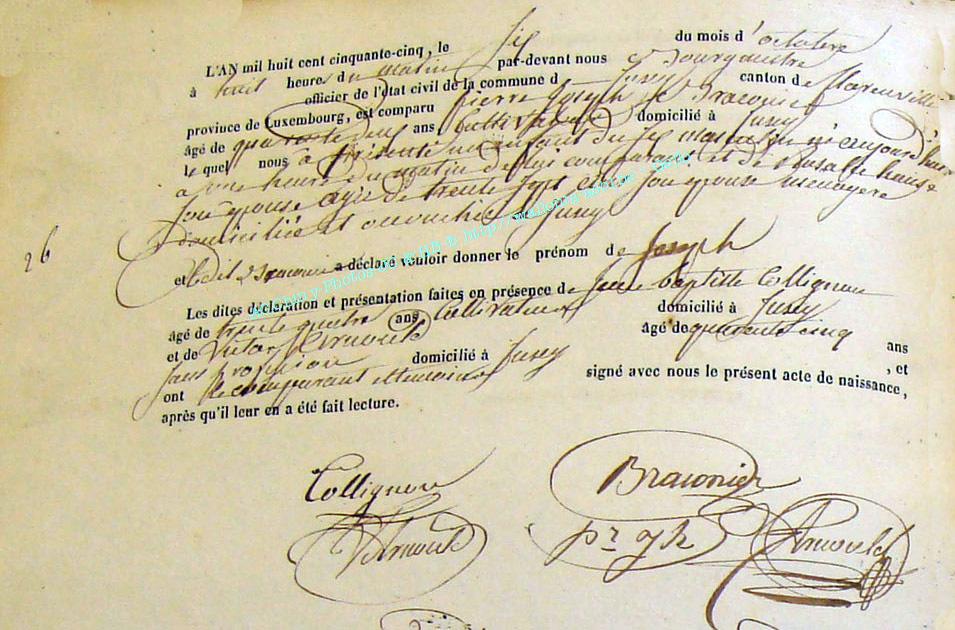 L'AN mil huit cent cinquante-cinq, le six du mois d'octobre
à huit heures du matin par-devant nous Bourgmestre
officier de l'état civil de la commune d Jusey canton de Florenville
province de Luxembourg, est comparu pierre Joseph Braconier
âgé de quarante deux ans Cultivateur domicilié à Jusey
lequel nous a présenté un enfant du sex masculin né aujourd'hui
a une heure du matin de lui comparant et de
son épouse agée de trente sept ans son épouse menagere
domiciliée et accouchée a Jusey
26
et ledit a déclaré vouloir donner le prénom de Joseph
Les dites déclaration et présentation faites en présence de Jean baptiste Collignon
âgé de trente quatre ans Cultivateur domicilié à Jusey
et de Victor Arnould âgé de quarante cinq ans
sans profession domicilié à Jusey , et
ont le comparant et temoins signé avec nous le présent acte de naissance,
après qu'il leur en a été fait lecture.
Collignon Braconier
VArnould prjh Arnould